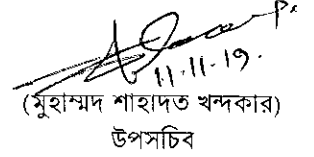 11-11-19.
(মুহাম্মদ শাহাদত খন্দকার)
উপসচিব